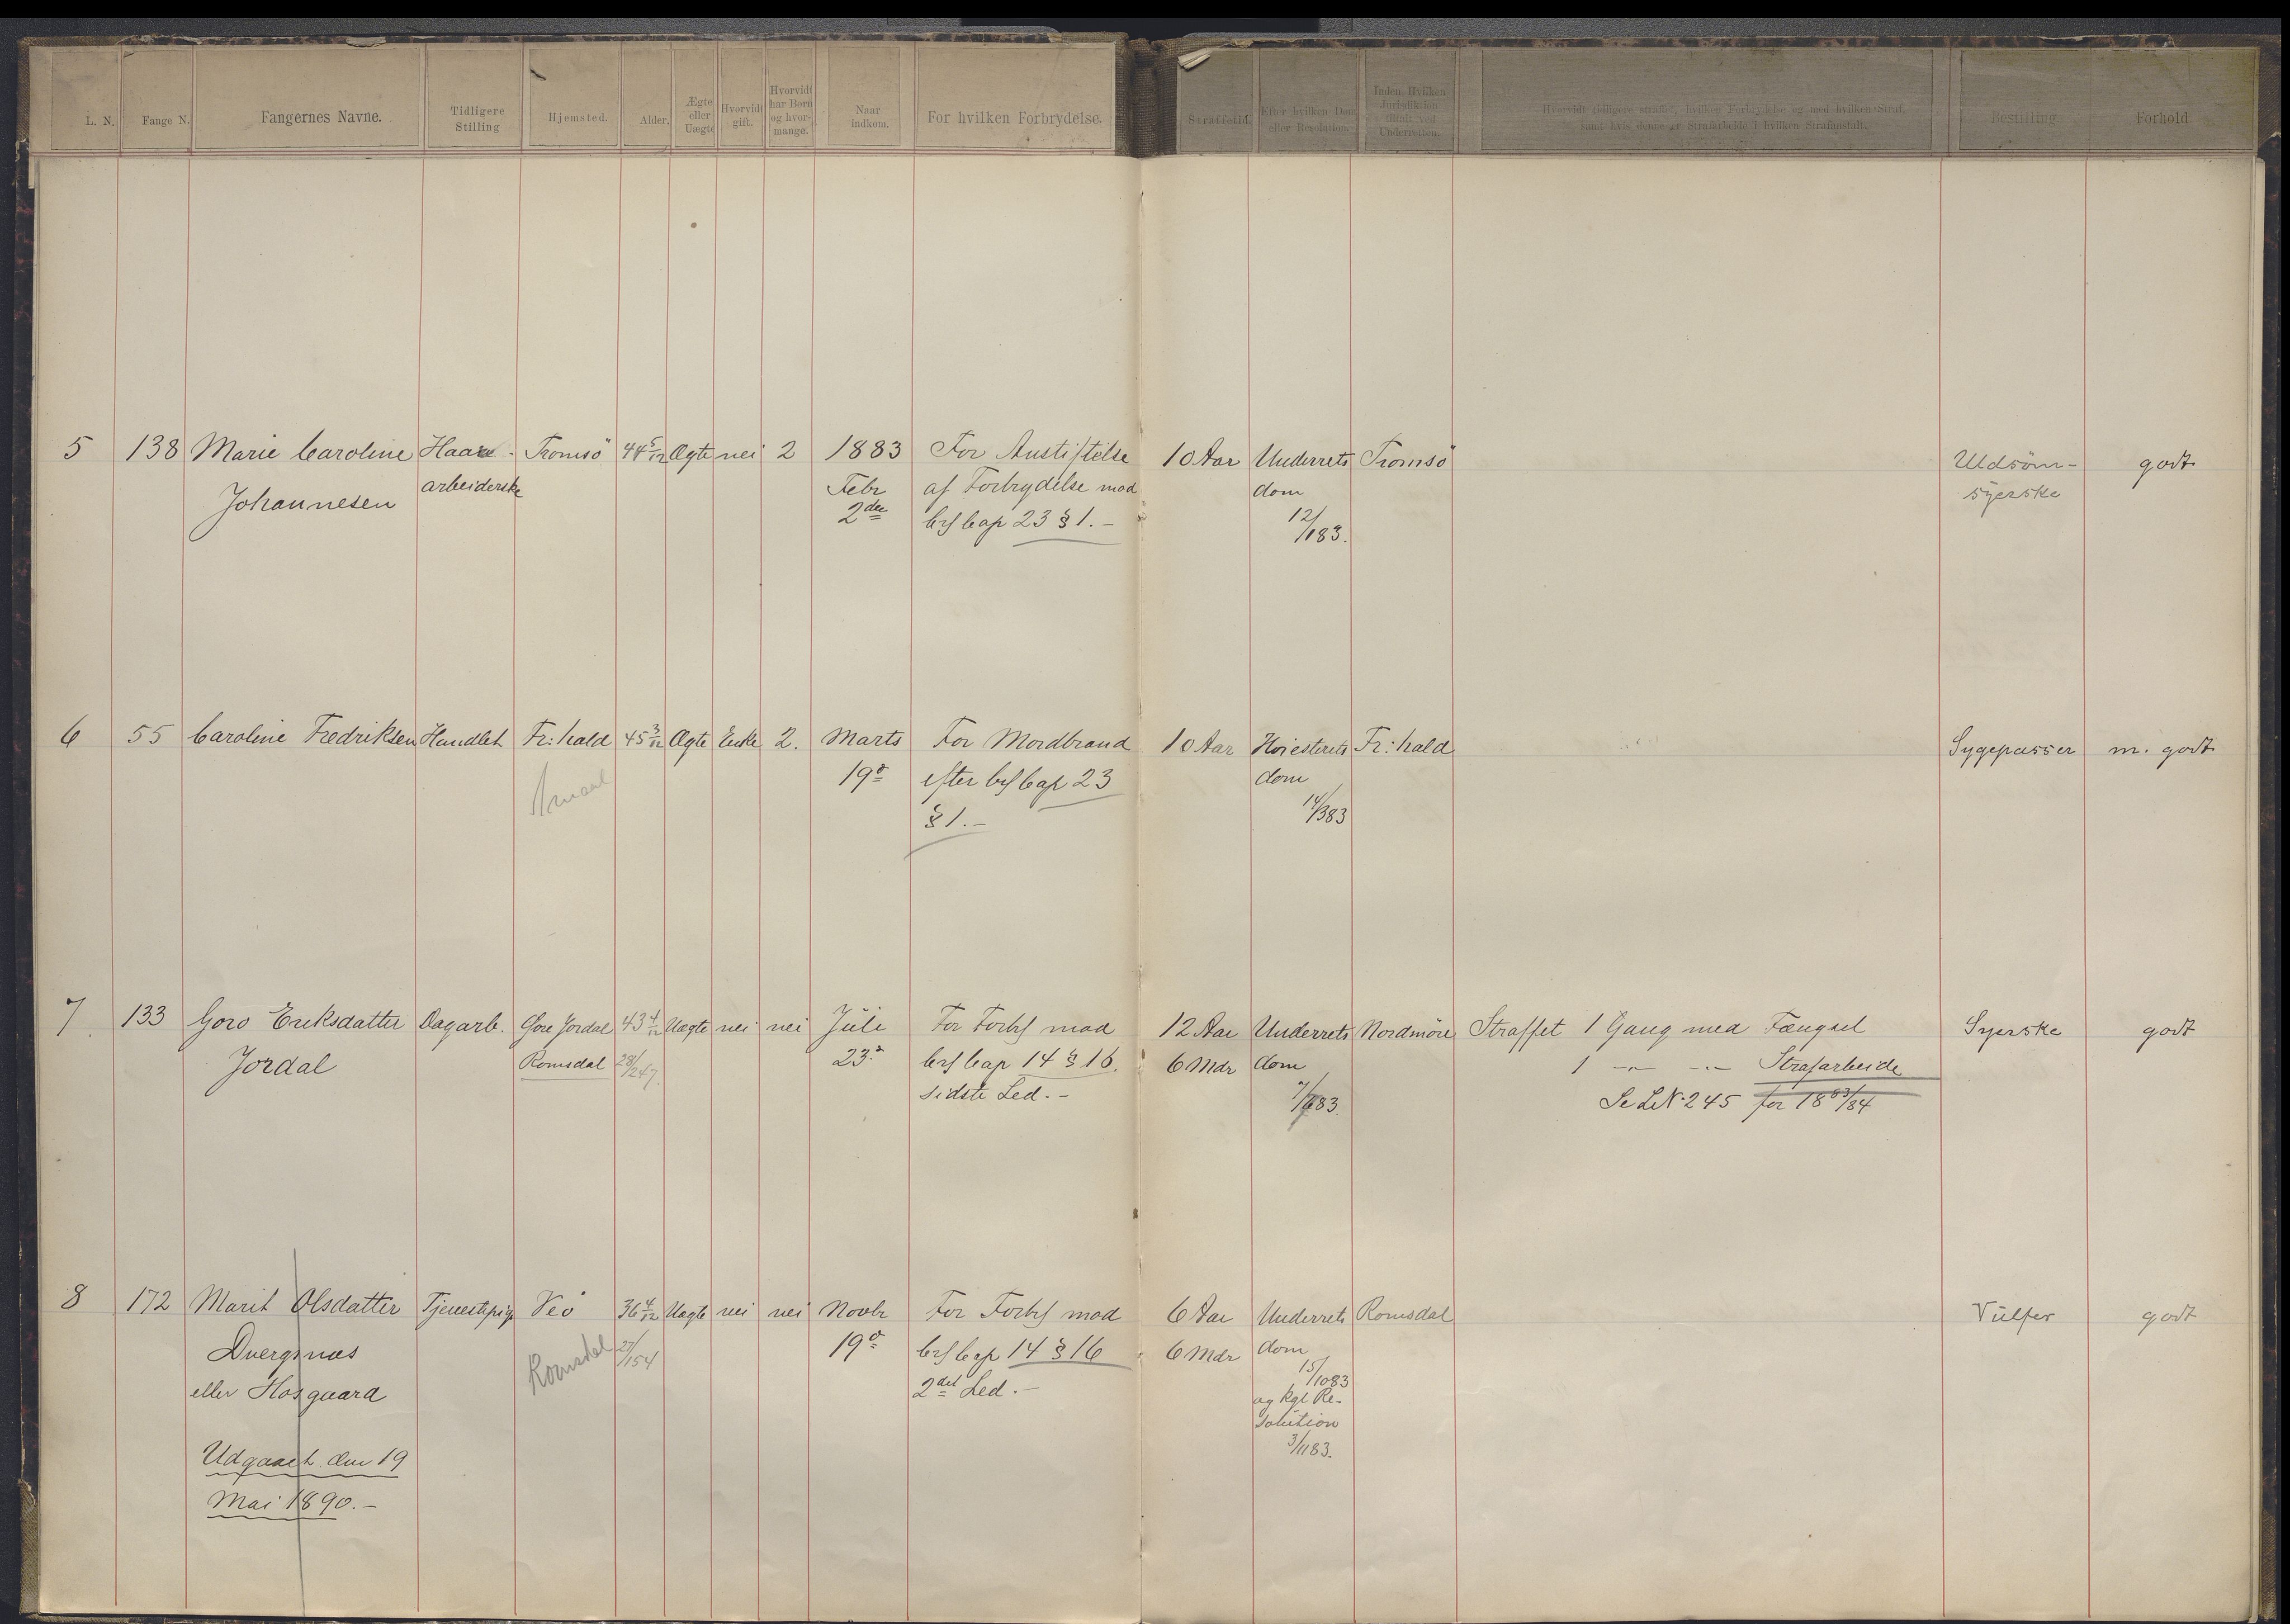 L. N.
Fange N.
Fangernes Navne.
Tidligere
Stilling
Hjemsted.
Alder.
Ægte
eller
Uægte
Hvorvidt
gift.
Hvorvidt
har Børn
og hvor-
mange.
Naar
indkom.
For hvilken Forbrydelse.
Straffetid.
Efter hvilken Dom
eller Resolution.
Inden Hvilken
Jurisdiktion
tiltalt ved
Underretten.
Hvorvidt tidligere straffet, hvilken Forbrydelse og med hvilken Straf,
samt hvis denne er Strafarbeide i hvilken Strafanstalt.
Bestilling
Forhold
5 138 Marie Caroline Haar- Tromsö 44 5/12 Ægte nei 2 1883 For Anstiftelse 10 Aar Underrets Tromsö Uldsöm- godt
Johannesen arbeiderske Febr af Forbrydelse mod dom syerske
2den Crl Cap 23 § 1.- 12/1 83.
6 55 Caroline Fredriksen Handleh Fr:hald 45 3/12 Ægte Enke 2. Marts For Mordbrand 10 Aar Höiesterets Fr:hald Sygepasser m. godt
19de efter Crl Cap 23 dom
§ 1.- 14/3 83
7 133 Goro Eriksdatter Dagarb. Öre Jordal 43 4/12 Uægte nei nei Juli For Forbr mod 12 Aar Underrets Nordmöre Straffet 1 Gang med Fængsel Syerske godt
Jordal Romsdal 28/2 47. 23de Crl Cap 14 § 16. 6 Mdr dom 1 -"- -"- Strafarbeide
sidste Led.- 7/6 83. Se LN 245 for 18 83/84
8 172 Marit Olsdatter Tjenestepige Veö 36 4/12 Uægte nei nei Novbr For Forbr mod 6 Aar Underrets Romsdal Vülfer godt
Dvergsnæs Romsdal 27/1 54 19de Crl Cap 14 § 16 6 Mdr dom
eller Hosgaard 2det Led.- 15/10 83
og kgl Re-
solution
3/11 83.
Udgaaet den 19
Mai 1890.-